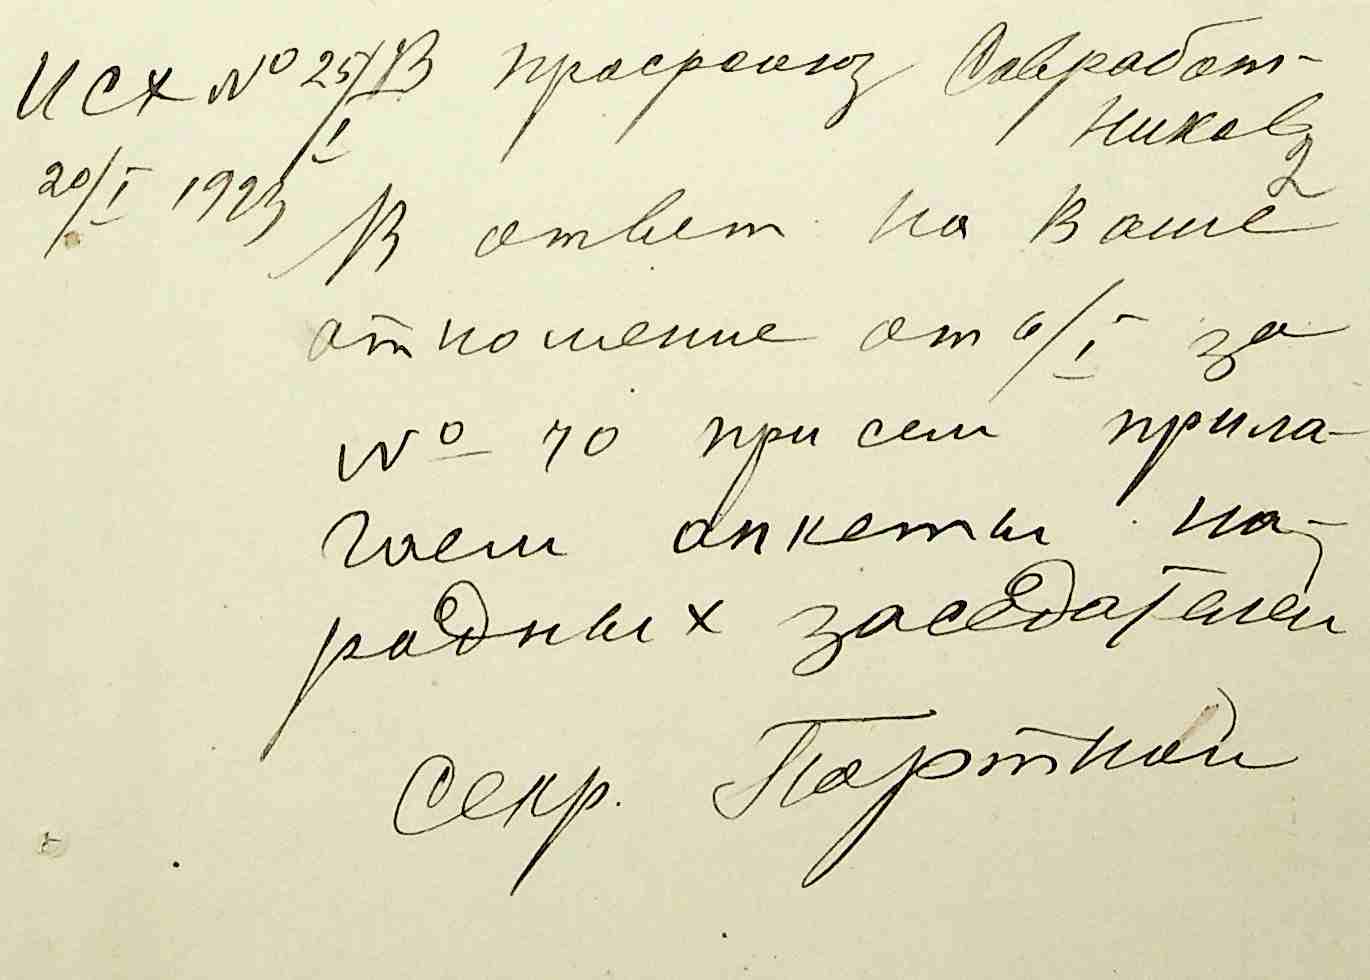 Исх № 25/I В профсоюз Совработ-
ников
2
20/I 1923
В ответ на Ваше
отношение от 6/I за
№ 70 при сем прила-
гаем анкеты на-
родных заседателей
Секр. Портной